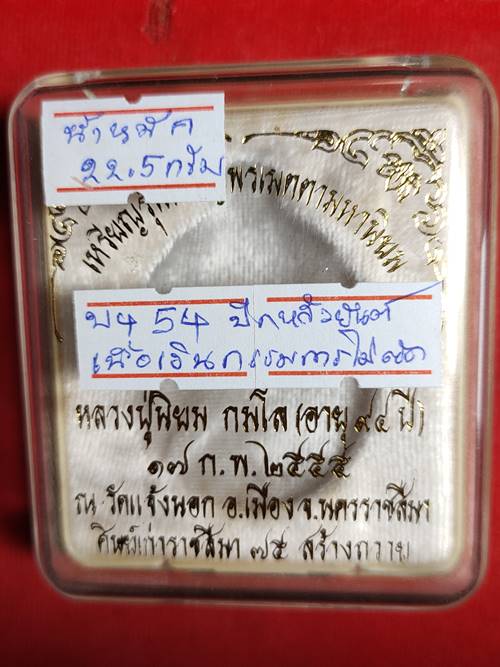 น้ำหนัก
22.5 กรัม
เหรียญรุ่น พรเมตตามหานิยม
54 ปิดหลังยันต์
เนื้อเงินกรรมการไม่ตัด
หลวงปู่นิยม กมโล (อายุ ๙๔ ปี)
๑๗ ก.พ. ๒๕๕๕
ณ วัดแจ้งนอก อ.เมือง จ.นครราชสีมา
ศิษย์เก่าราชสีมา ๗๕ สร้างถวาย